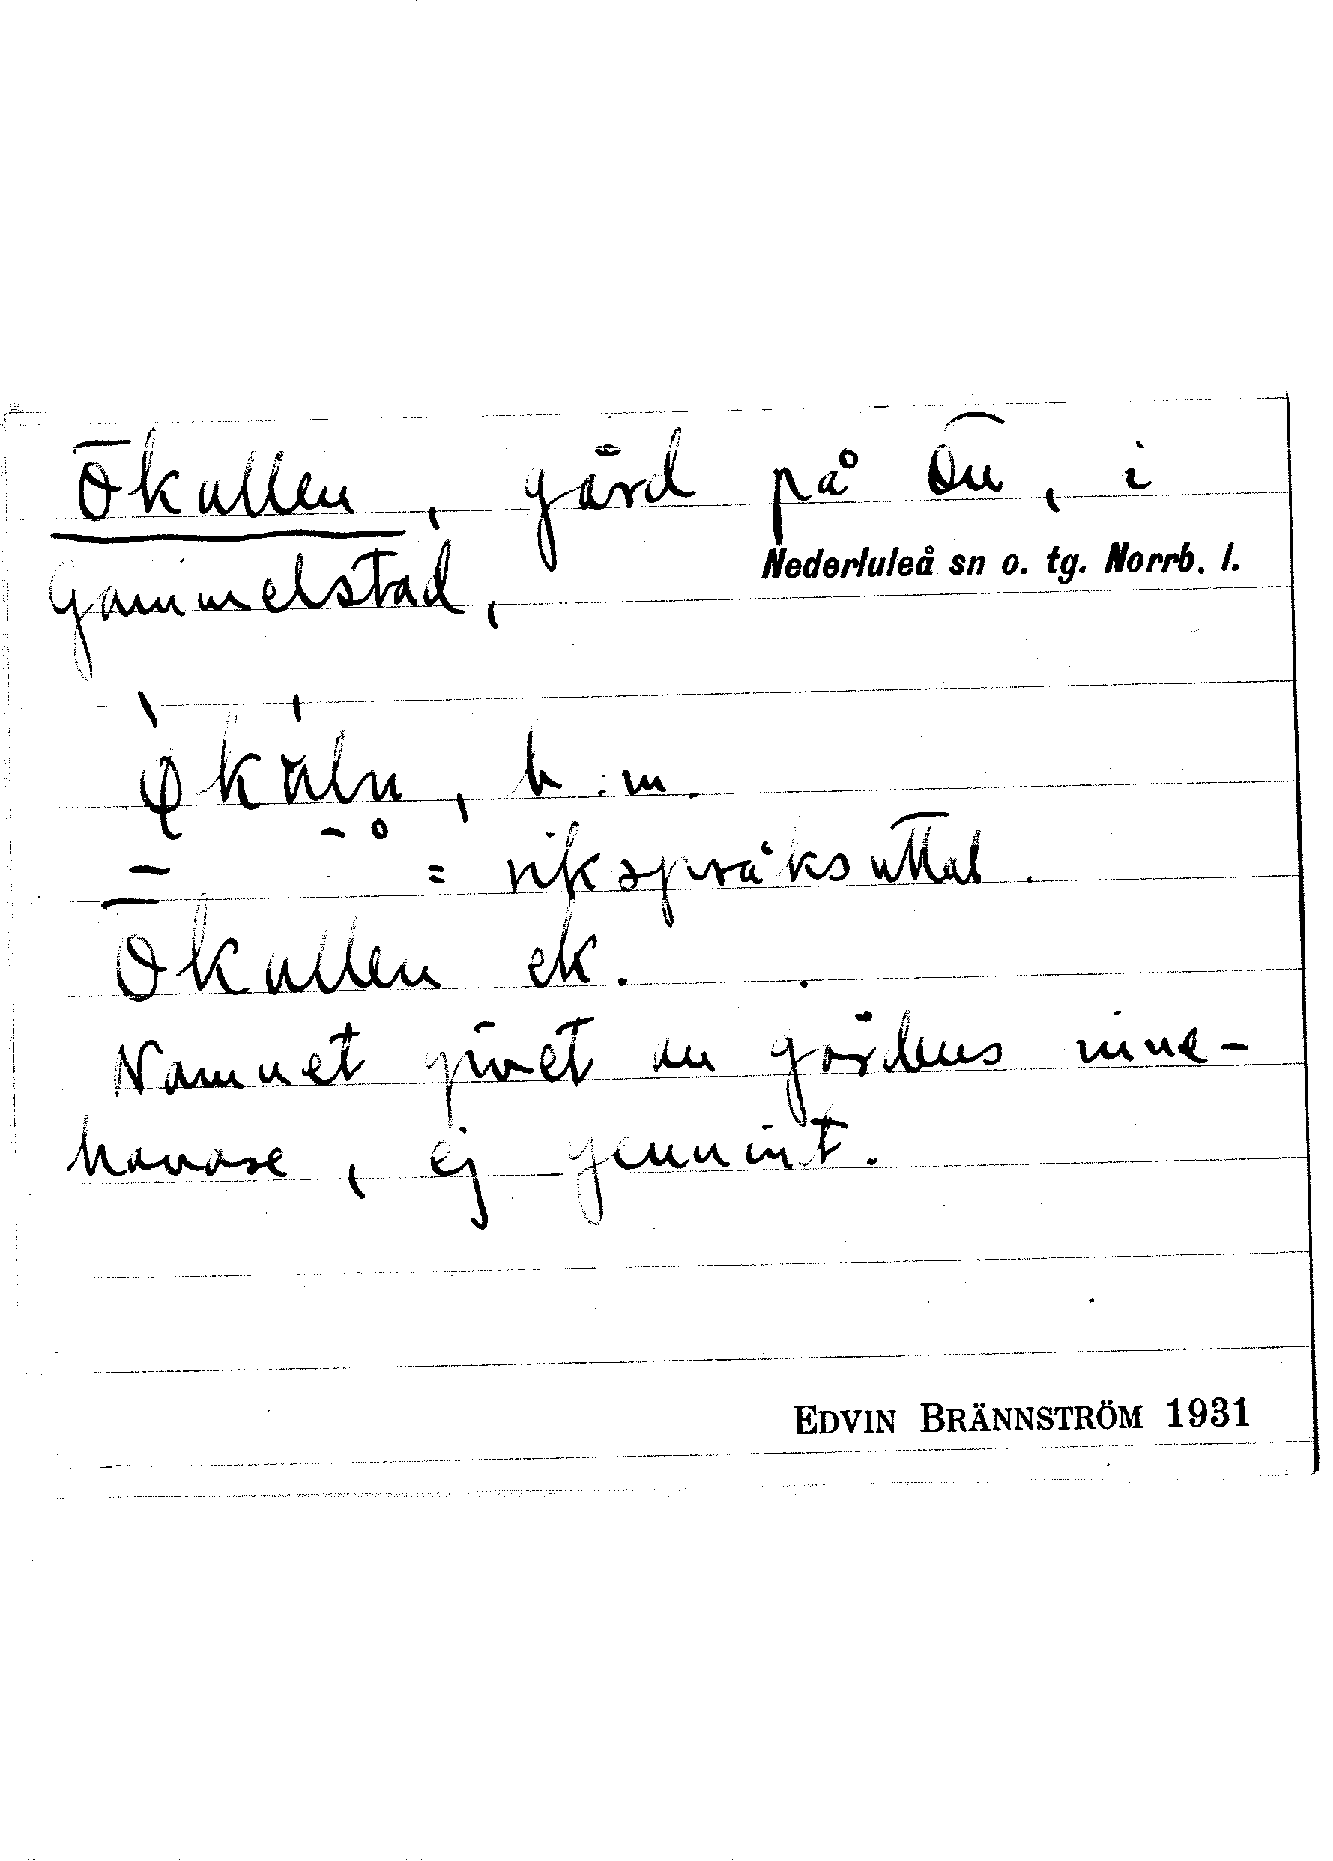 Ökullen, gård på Ön, i
Nederluleå sn o. tg. Norrb. l.
Gammelstad,
b.m.
= riksspråksuttal.
Ökullen ek.
Namnet givet av gårdens inne-
havare, ej genuint.
EDVIN BRÄNNSTRÖM 1931